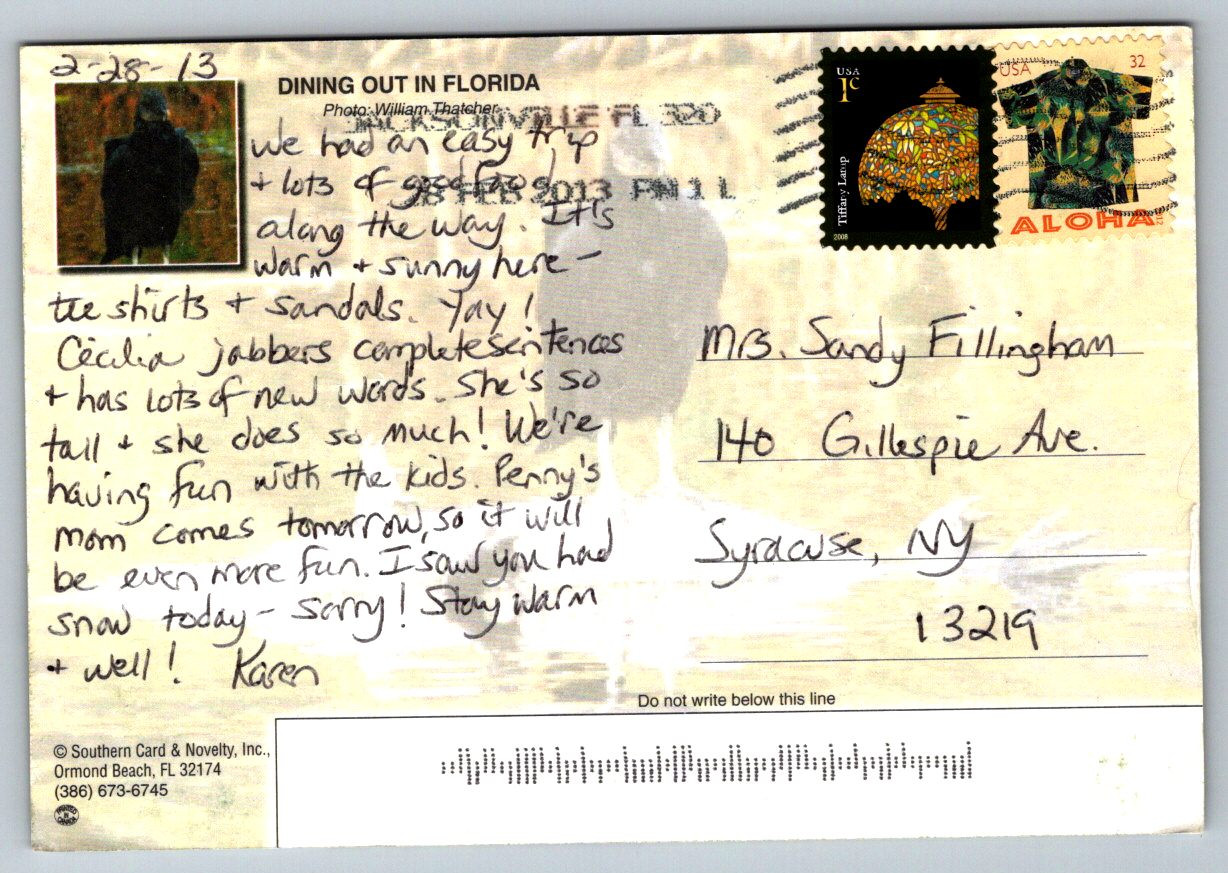 2-28-13
DINING OUT IN FLORIDA
Photo: William Thatcher
JACKSONVILLE FL 320
28 FEB 2013 PM 1 L
We had an easy trip
+ lots of good food
along the way. It's
warm + sunny here -
tee shirts + sandals. Yay!
Cecilia jabbers complete sentences
+ has lots of new words. She's so
tall + she does so much! We're
having fun with the kids. Penny's
mom comes tomorrow, so it will
be even more fun. I saw you had
snow today - sorry! Stay warm
+ well! Karen
USA
1c
Tiffany Lamp
2008
USA 32
ALOHA
Mrs. Sandy Fillingham
140 Gillespie Ave.
Syracuse, NY
13219
Do not write below this line
© Southern Card & Novelty, Inc.,
Ormond Beach, FL 32174
(386) 673-6745
PRINTED
IN
CANADA